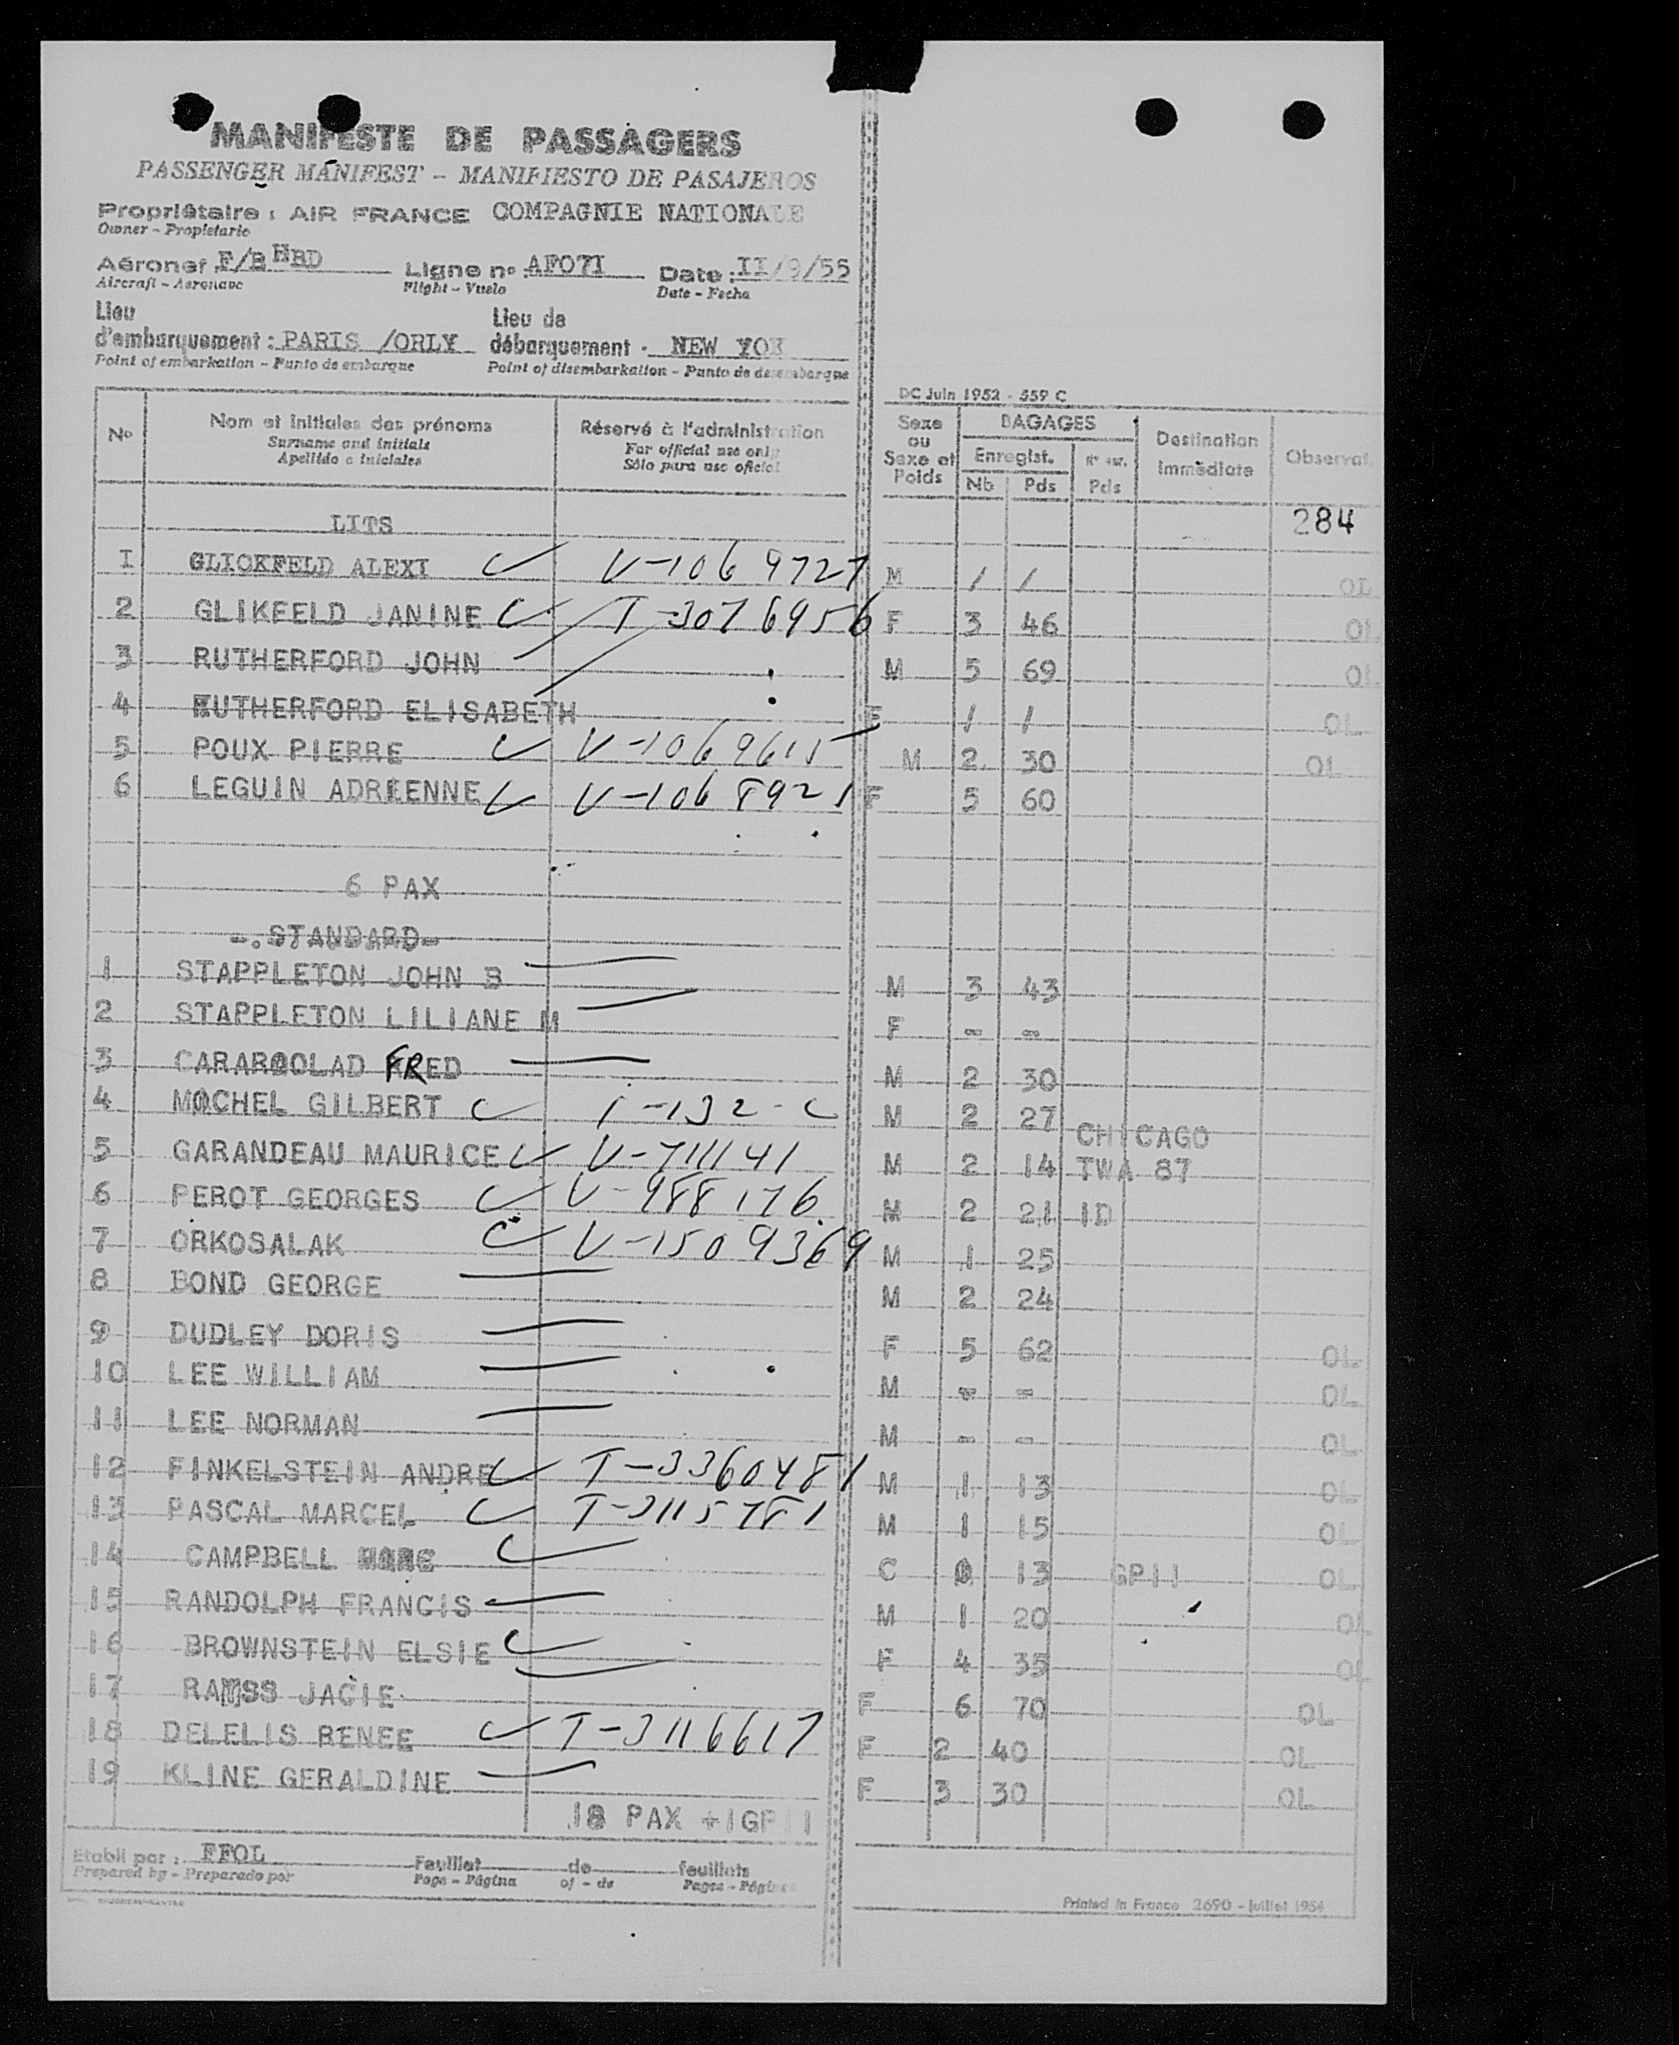 MANIFESTE DE PASSAGERS
PASSENGER MANIFEST - MANIFIESTO DE PASAJEROS
Propriétaire : AIR FRANCE COMPAGNIE NATIONALE
Owner - Propietario
Aéronef F/B HBD Ligne n° AF07I Date : II/9/55
Aircraft - Aeronave Flight - Vuelo Date - Fecha
Lieu d'embarquement : PARIS /ORLY Lieu de débarquement - NEW YOK
Point of embarkation - Punto de embarque Point of disembarkation - Punto de desembarque
DC Juin 1952 - 559 C
N° Nom et initiales des prénoms Réservé à l'administration Sexe ou Sexe et Poids BAGAGES Destination immédiate Observat.
Surname and initials For official use only Enregist.
Apellido e iniciales Sólo para uso oficial Nb Pds Pds
LITS 284
I GLICKFELD ALEXI V-1069727 M / / OL
2 GLIKFELD JANINE T-3076956 F 3 46 OL
3 RUTHERFORD JOHN M 5 69 OL
4 RUTHERFORD ELISABETH F / / OL
5 POUX PIERRE V-1069615 M 2 30 OL
6 LEGUIN ADRIENNE V-1068921 F 5 60
6 PAX
-.STANDARD-
1 STAPPLETON JOHN B M 3 43
2 STAPPLETON LILIANE M F - -
3 CARARQOLAD FRED M 2 30
4 MOCHEL GILBERT I-132-C M 2 27
CHICAGO
5 GARANDEAU MAURICE V-711141 M 2 14 TWA 87
6 PEROT GEORGES V-988176 M 2 21 ID
7 ORKOSALAK V-1509369 M 1 25
8 BOND GEORGE M 2 24
9 DUDLEY DORIS F 5 62 OL
10 LEE WILLIAM M - - OL
11 LEE NORMAN M - - OL
12 FINKELSTEIN ANDRE T-3360481 M 1 13 OL
13 PASCAL MARCEL T-3115781 M 1 15 OL
14 CAMPBELL C 13 GP11 OL
15 RANDOLPH FRANCIS M 1 20 OL
16 BROWNSTEIN ELSIE F 4 35 OL
17 JACIE F 6 70 OL
18 DELELIS RENEE T-3116617 F 2 40 OL
19 KLINE GERALDINE F 3 30 OL
18 PAX +1GP11
Etabli par : FFOL Feuillet de feuillets
Prepared by - Preparado por Page - Página of - de Pages - Páginas
Printed in France 2690 - juillet 1954